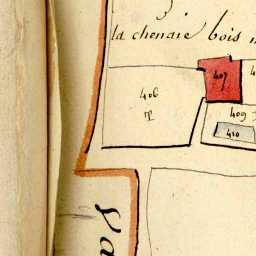 la chenaie bois
407
406
409
410